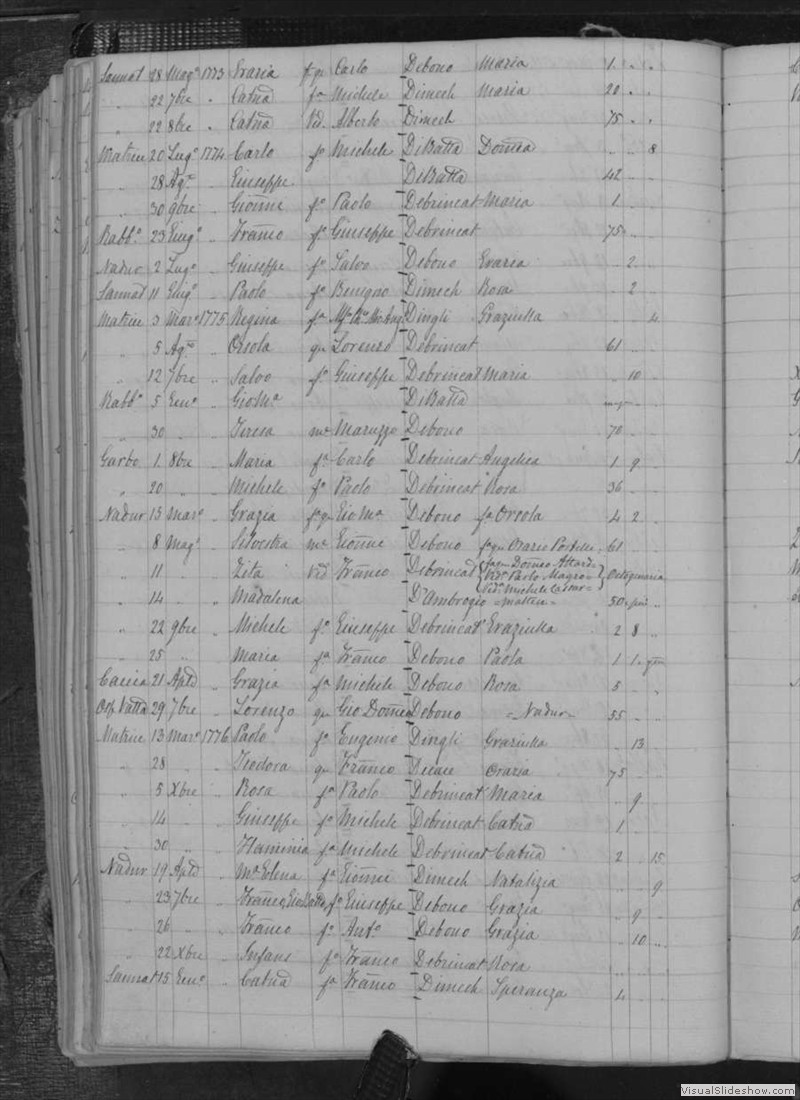 Sannat 28 Magᵒ 1773 Grazia fᵃ qᵐ Carlo Debono Maria 1 " "
" 22 7bre " Catñā fᵃ Michele Dimech Maria 20 " "
" 22 8bre " Catñā Vid. Alberto Dimech 75 " "
Matrice 20 Lugᵒ 1774 Carlo fᵒ Michele DiBattā Domẽa " " 8
" 28 Agᵗᵒ " Giuseppe DiBattā 42 " "
" 30 9bre " Gioñne fᵒ Paolo Debrincat Maria 1 "
Rabbᵒ 23 Giugᵒ " Frañco fᵒ Giuseppe Debrincat 75 " "
Nadur 2 Lugᵒ " Giuseppe fᵒ Salvo Debono Grazia " 2 "
Sannat 11 " Paolo fᵒ Benigno Dimech Rosa " 2 "
Matrice 3 Marᵒ 1775 Regina fᵃ Dingli Graziulla " " 4
" 5 Agᵗᵒ " Orsola qᵐ Lorenzo Debrincat 61 " "
" 12 7bre " Salvo fᵒ Giuseppe Debrincat Maria " 10 "
Rabbᵒ 5 Genᵒ " GioMᵃ DiBattā
" 30 " " Teresa mᵉ Maruzzo Debono 70 " "
Garbo 1 8bre " Maria fᵃ Carlo Debrincat Angelica 1 9 "
" 20 " " Michele fᵒ Paolo Debrincat Rosa 36 " "
Nadur 13 Marᵒ " Grazia fᵃ qᵐ GioMᵃ Debono fᵃ Orsola 4 2 "
" 8 Magᵒ " Silvestra mᵉ Gioñne Debono fᵃ qᵐ Orazio Portelli 61 "
" 11 " " Zita Vid Frañco Debrincat { fᵃ qᵐ Domẽo Attard = Vidᵃ Carlo Magro = Vidᵃ Michele Cesar = } Octogenaria
" 14 " " Madalena D'Ambrogio = Matrice = 50 " più "
" 22 9bre " Michele fᵒ Giuseppe Debrincat Graziulla 2 8 "
" 25 " " Maria fᵃ Frañco Debono Paola 1 1
Caccia 21 Aplē " Grazia fᵃ Michele Debono Rosa 5 " "
Osp. Vallā 29 7bre " Lorenzo qᵐ Gio Domẽo Debono = Nadur = 55 " "
Matrice 13 Marᵒ 1776 Paolo fᵒ Eugenio Dingli Graziulla " 13 "
" 28 " " Teodora qᵐ Frañco Decace Orazia 75 " "
" 5 Xbre " Rosa fᵃ Paolo Debrincat Maria " 9
" 14 " " Giuseppe fᵒ Michele Debrincat Catñā 1 "
" 30 " " Flaminia fᵃ Michele Debrincat Catñā 2 " 15
Nadur 19 Aplē " Mᵃ Elena fᵃ Gioñne Dimech Natalizia " " 9
" 23 7bre " Frañco, GioBattā, fᵒ Giuseppe Debono Grazia " 9 "
" 26 " " Frañco fᵒ Antᵒ Debono Grazia " 10 "
" 22 Xbre " Infans fᵒ Frañco Debrincat Rosa " " "
Sannat 15 Genᵒ " Catñā fᵃ Frañco Dimech Speranza 4 " "
VisualSlideshow.com